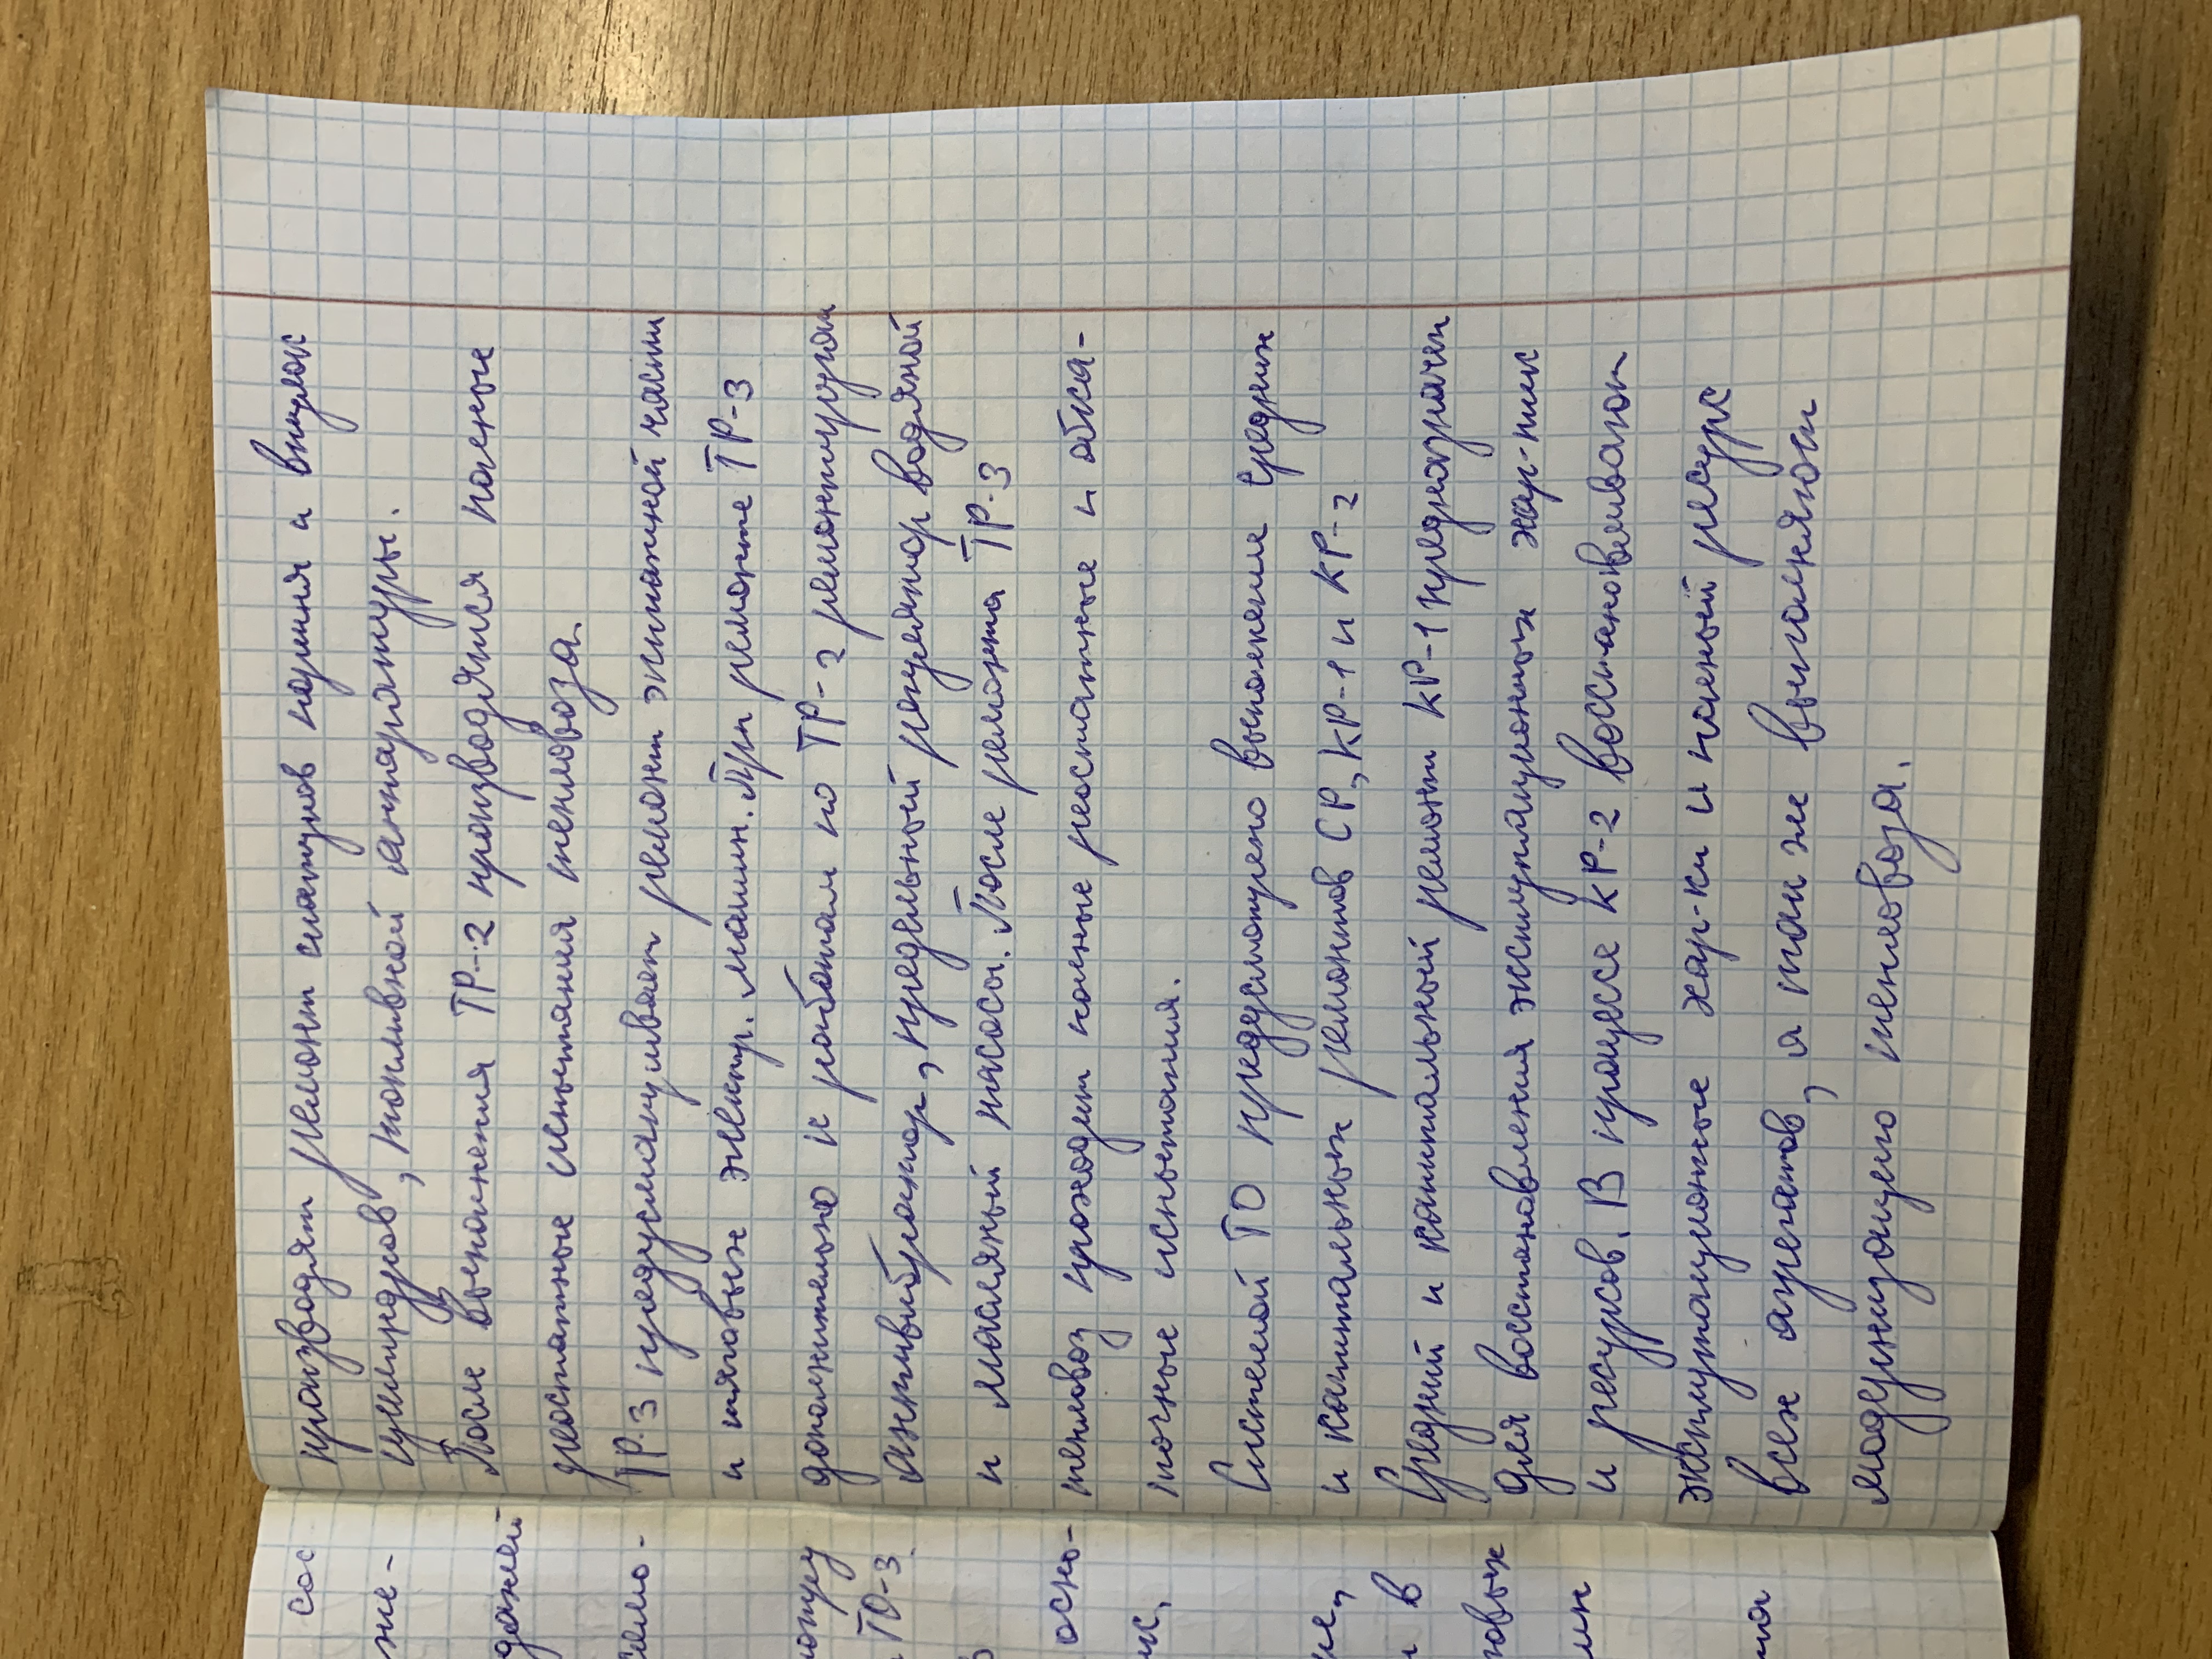 производят ремонт шатунов поршня и втулок
цилиндров, топливной аппаратуры.
После выполнения ТР-2 производятся полные
реостатные испытания тепловоза.
ТР-3 предусматривает ремонт экипажной части
и тяговых электр. машин. При ремонте ТР-3
дополнительно к работам по ТР-2 ремонтируют
антивибратор, предельный регулятор водяной
и масляный насосы. После ремонта ТР-3
тепловоз проходит полные реостатные и обка-
точные испытания.
Системой ТО предусмотрено выполнение средних
и капитальных ремонтов СР, КР-1 и КР-2
Средний и капитальный ремонт КР-1 предназначен
для востановления эксплутационых хар-тик
и ресурсов. В процессе КР-2 востановливают
эксплутационные хар-ки и полный ресурс
всех агрегатов, а так же выполняют
модернизацию тепловоза.
сос
же-
ТО-3
осно-
в